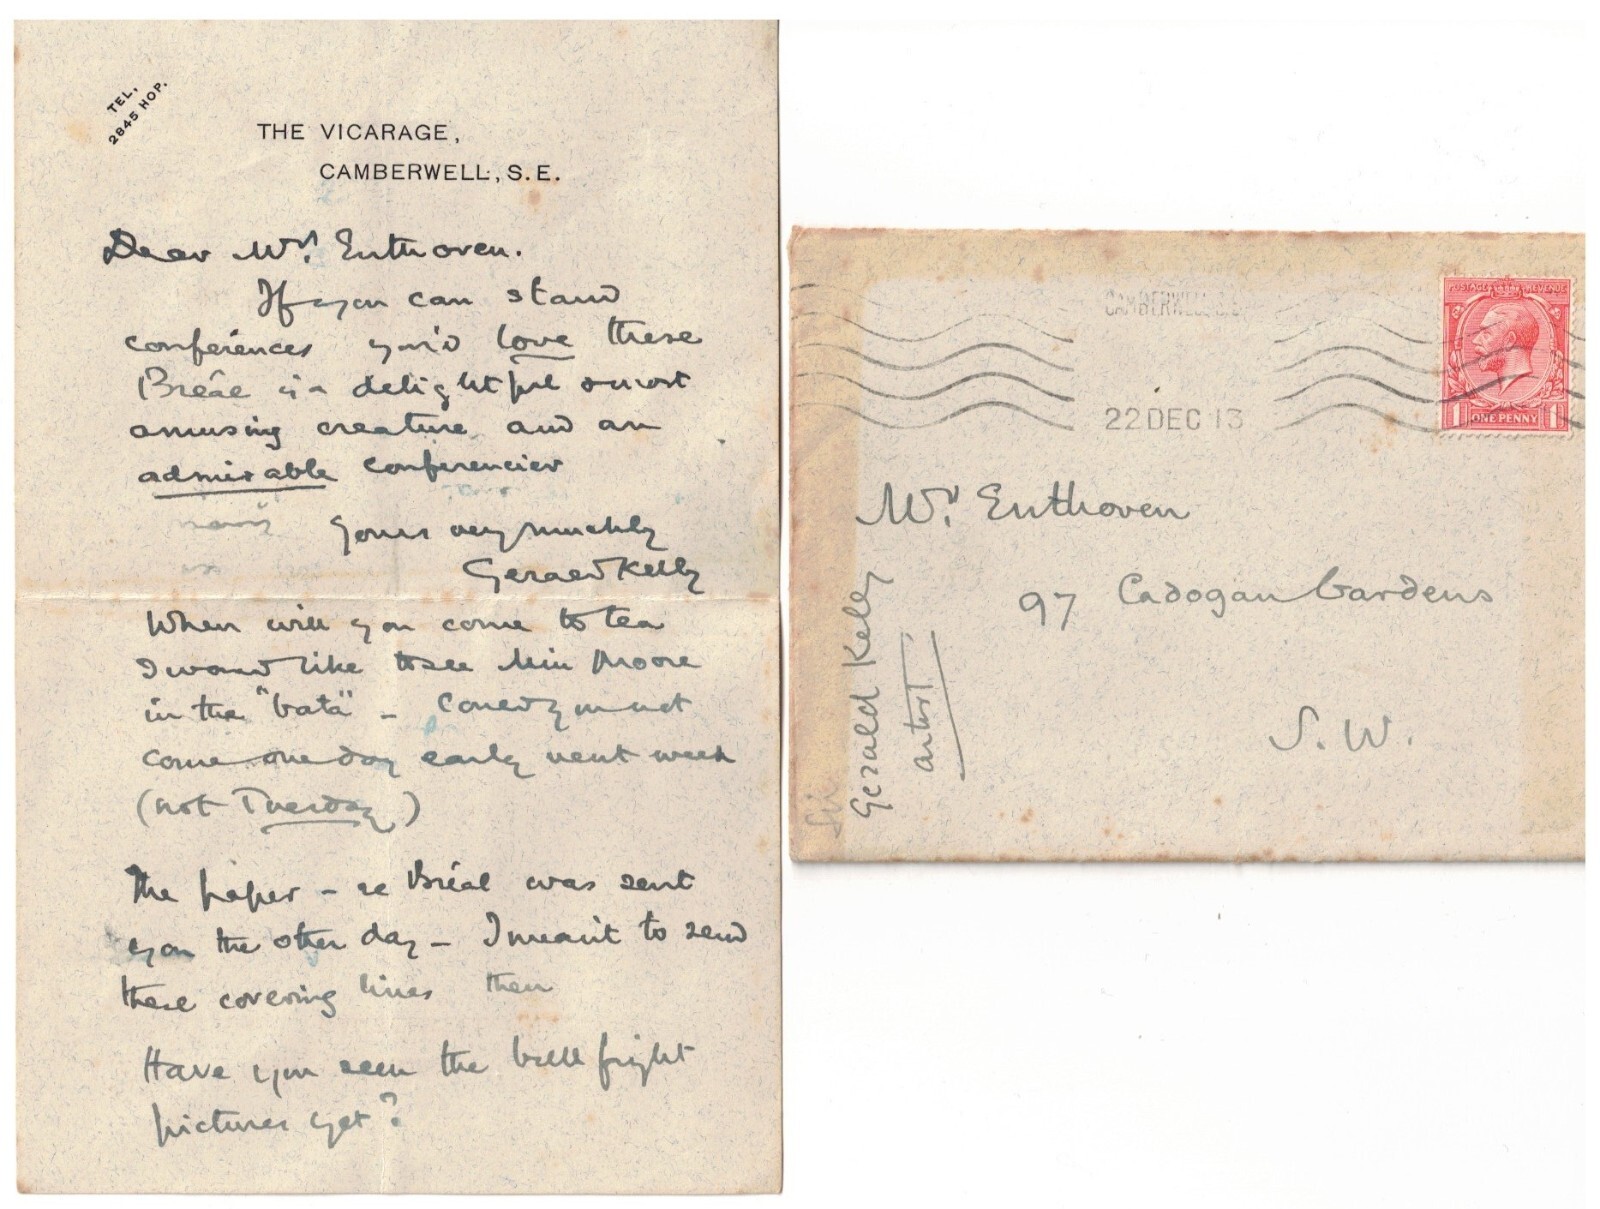 TEL,
2845 HOP.
THE VICARAGE,
CAMBERWELL, S.E.
Dear Mrs. Enthoven.
If you can stand
conférences you'd love these
Bréal is a delightful & most
amusing creature and an
admirable conferencier
Yours very muchly
Gerald Kelly
When will you come to tea
I would like to see Miss Moore
in the "bata" -
come one day early next week
(not Tuesday)
The paper - re Bréal was sent
you the other day - I meant to send
these covering lines then
Have you seen the bull fright
pictures yet?
CAMBERWELL S.E.
22 DEC 13
POSTAGE REVENUE
1 ONE PENNY 1
Mrs. Enthoven
97 Cadogan Gardens
S. W.
Sir
Gerald Kelly
artist